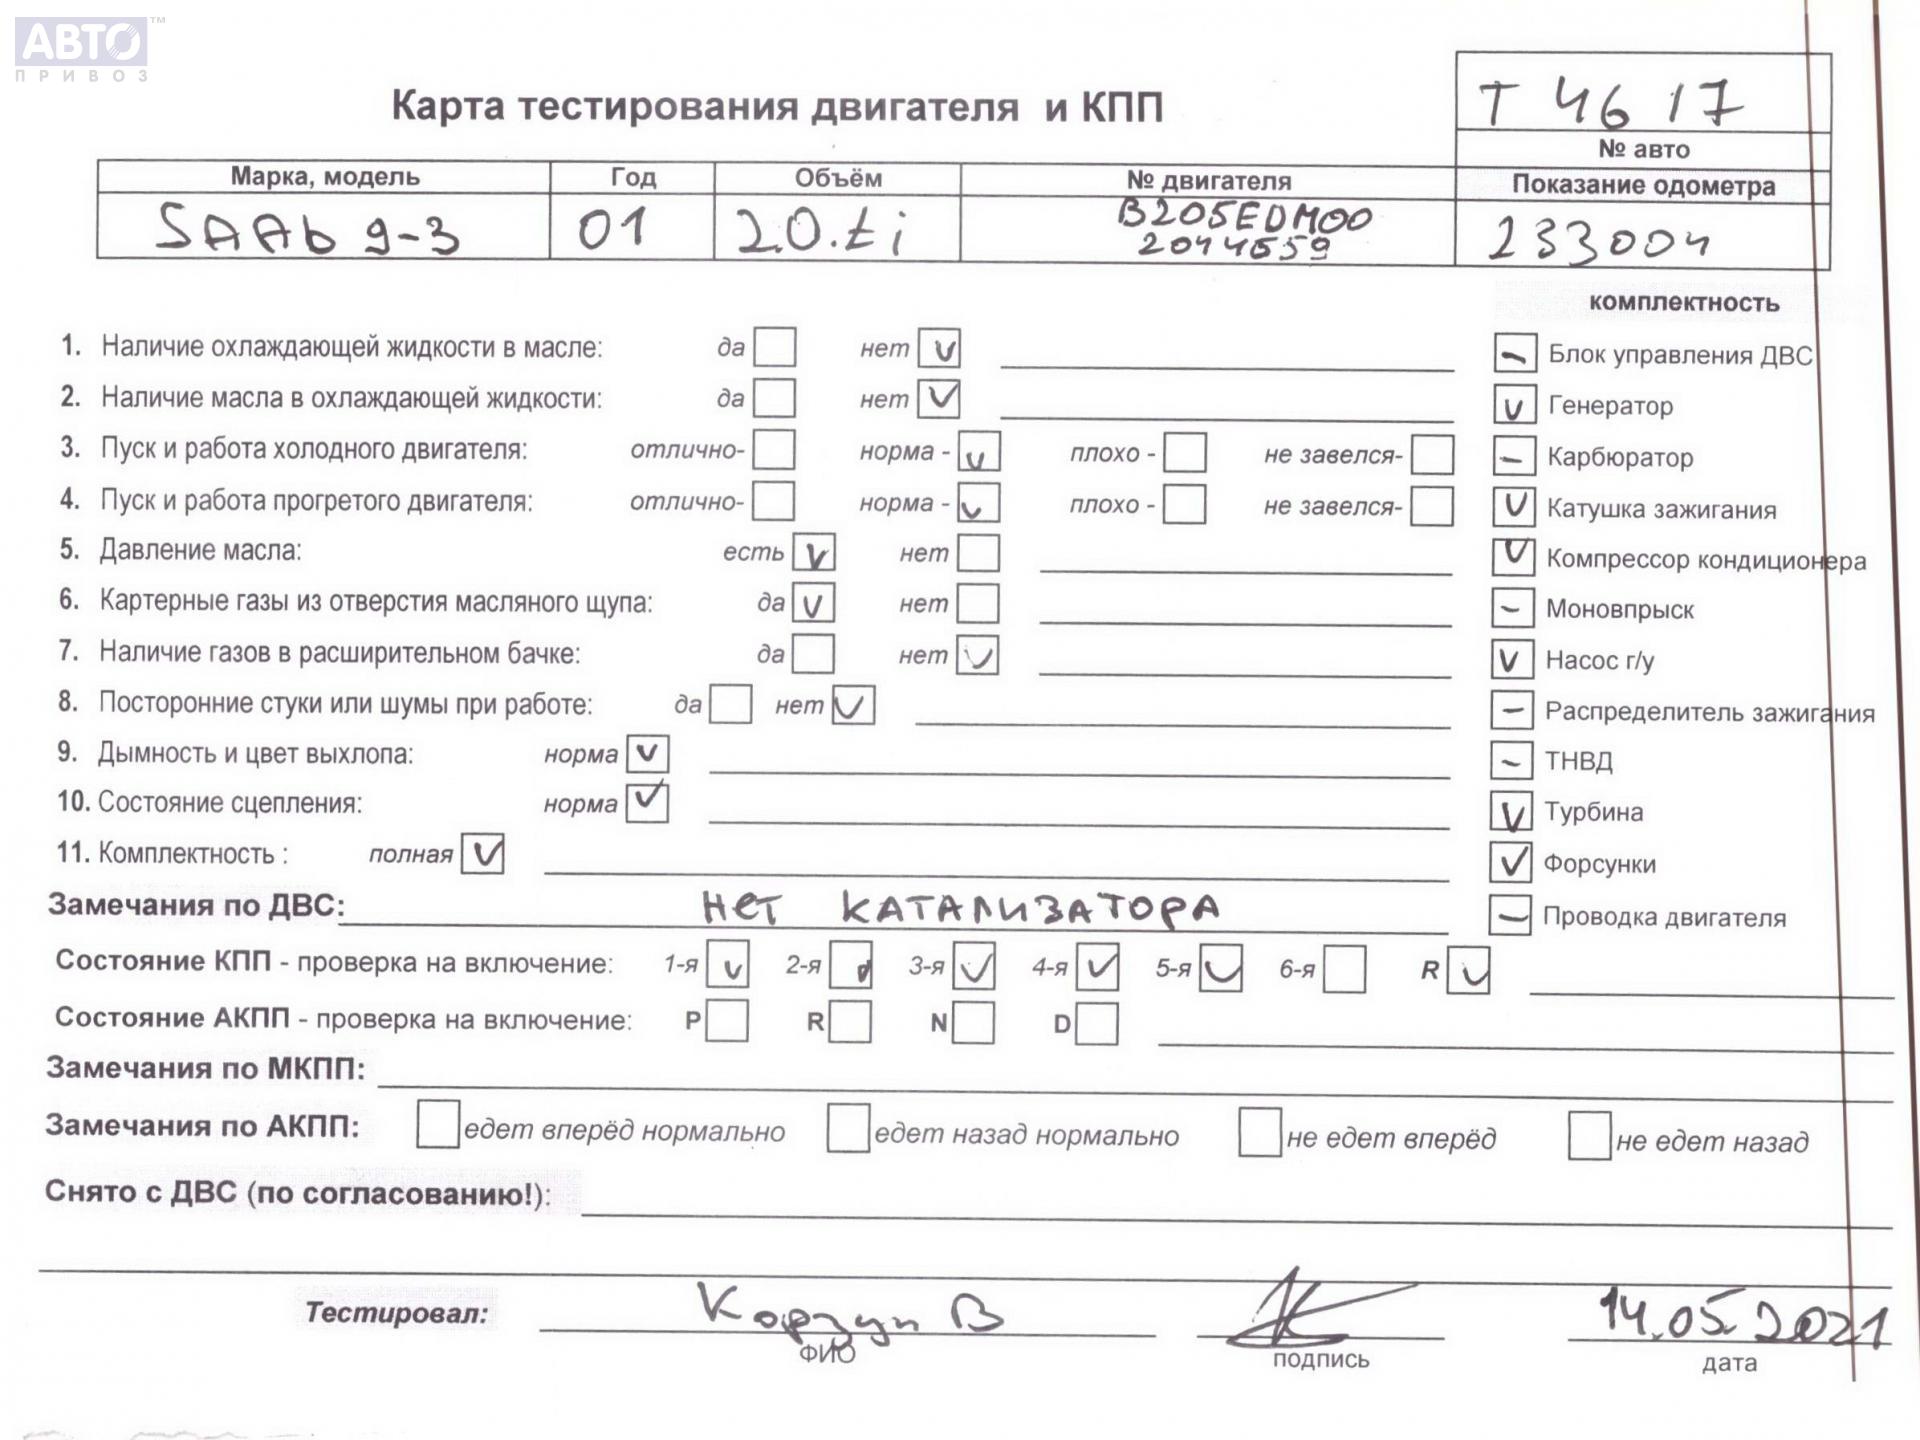 АВТО™
ПРИВОЗ
Карта тестирования двигателя и КПП
Т 4617
№ авто
Марка, модель Год Объём № двигателя Показание одометра
SAAb 9-3 01 2.0.ti B205EDM00 233004
2044659
комплектность
1. Наличие охлаждающей жидкости в масле: да нет v
Блок управления ДВС
2. Наличие масла в охлаждающей жидкости: да нет v
v Генератор
3. Пуск и работа холодного двигателя: отлично- норма - v плохо - не завелся-
- Карбюратор
4. Пуск и работа прогретого двигателя: отлично- норма - v плохо - не завелся-
v Катушка зажигания
5. Давление масла: есть v нет
v Компрессор кондиционера
6. Картерные газы из отверстия масляного щупа: да v нет
- Моновпрыск
7. Наличие газов в расширительном бачке: да нет v
v Насос г/у
8. Посторонние стуки или шумы при работе: да нет v
- Распределитель зажигания
9. Дымность и цвет выхлопа: норма v
- ТНВД
10. Состояние сцепления: норма v
v Турбина
11. Комплектность : полная v
v Форсунки
Замечания по ДВС: нет катализатора
- Проводка двигателя
Состояние КПП - проверка на включение: 1-я v 2-я v 3-я v 4-я v 5-я v 6-я R v
Состояние АКПП - проверка на включение: P R N D
Замечания по МКПП:
Замечания по АКПП: едет вперёд нормально едет назад нормально не едет вперёд не едет назад
Снято с ДВС (по согласованию!):
Тестировал: Корзун В 14.05.2021
ФИО подпись дата